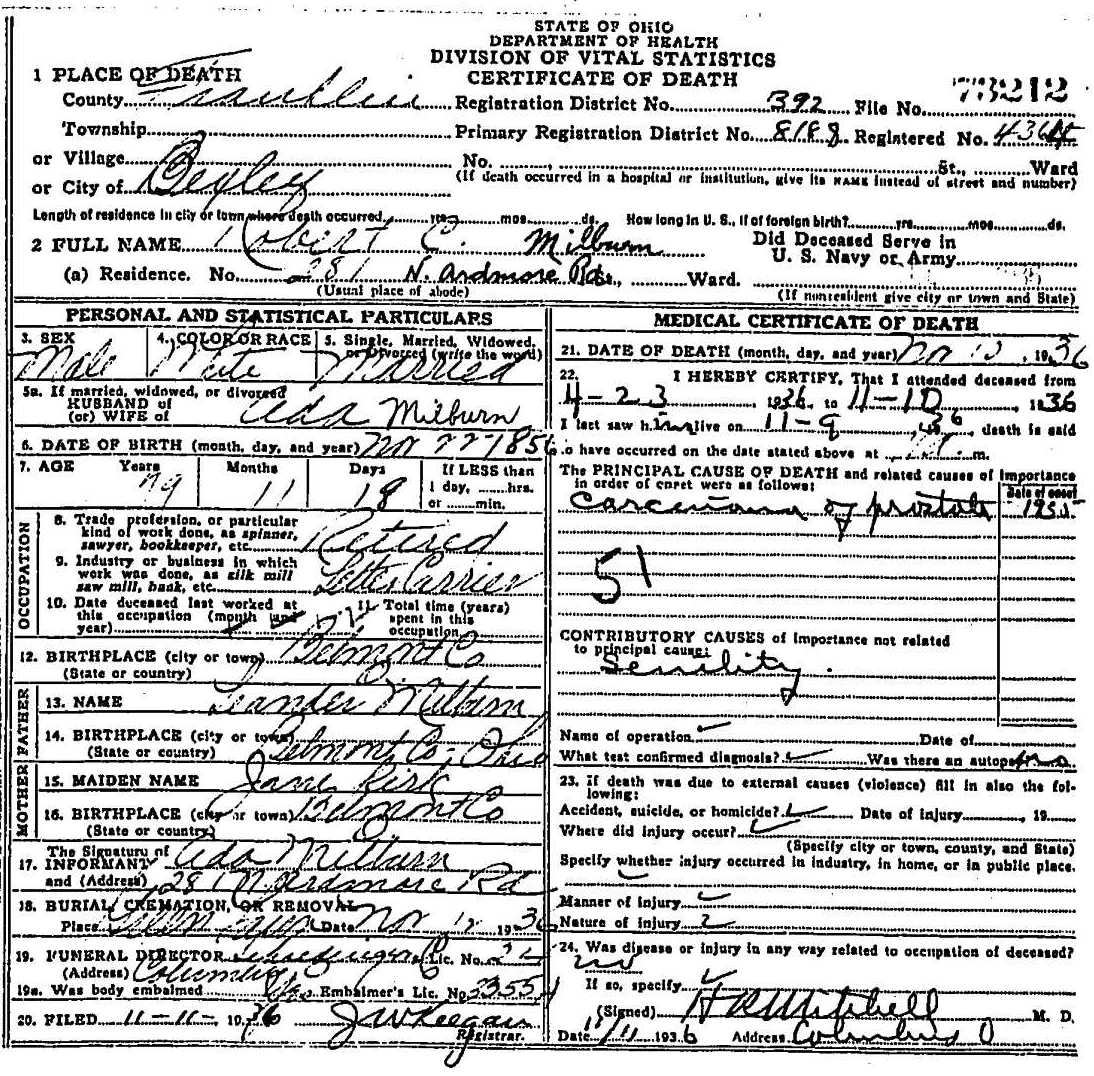 STATE OF OHIO
DEPARTMENT OF HEALTH
DIVISION OF VITAL STATISTICS
CERTIFICATE OF DEATH
1 PLACE OF DEATH
County Franklin Registration District No. 392 File No. 73212
Township Primary Registration District No. 8188 Registered No. 4364
or Village No. St., Ward
or City of Bexley (If death occurred in a hospital or institution, give its NAME instead of street and number)
Length of residence in city or town where death occurred yrs. mos. ds. How long in U. S., if of foreign birth? yrs. mos. ds.
2 FULL NAME Robert C. Milburn Did Deceased Serve in
U. S. Navy or Army
(a) Residence. No. 281 N. Ardmore Rd. St., Ward.
(Usual place of abode) (If nonresident give city or town and State)
PERSONAL AND STATISTICAL PARTICULARS
3. SEX 4. COLOR OR RACE 5. Single, Married, Widowed,
or Divorced (write the word)
Male White Married
5a. If married, widowed, or divorced
HUSBAND of
(or) WIFE of Ada Milburn
6. DATE OF BIRTH (month, day, and year) Nov 22 1856
7. AGE Years Months Days If LESS than
1 day, hrs.
79 11 18 or min.
OCCUPATION
8. Trade profession, or particular
kind of work done, as spinner,
sawyer, bookkeeper, etc. Retired
9. Industry or business in which
work was done, as silk mill
saw mill, bank, etc. Letter Carrier
10. Date deceased last worked at
this occupation (month and
year)
11. Total time (years)
spent in this
occupation
12. BIRTHPLACE (city or town) Belmont Co
(State or country)
FATHER
13. NAME Leander Milburn
14. BIRTHPLACE (city or town) Belmont Co, Ohio
(State or country)
MOTHER
15. MAIDEN NAME Jane Kirk
16. BIRTHPLACE (city or town) Belmont Co
(State or country)
The Signature of
17. INFORMANT Ada Milburn
and (Address) 281 N. Ardmore Rd
18. BURIAL, CREMATION, OR REMOVAL
Place Date Nov 12 1936
19. FUNERAL DIRECTOR Lic. No.
(Address) Columbus
19a. Was body embalmed Yes Embalmer's Lic. No. 3355
20. FILED 11-11- 1936 J W Keegan
Registrar.
MEDICAL CERTIFICATE OF DEATH
21. DATE OF DEATH (month, day, and year) Nov 10, 1936
22. I HEREBY CERTIFY, That I attended deceased from
4-23, 1936 to 11-10, 1936
I last saw him alive on 11-9, 1936, death is said
to have occurred on the date stated above at m.
The PRINCIPAL CAUSE OF DEATH and related causes of importance
in order of onset were as follows:
Date of onset
Carcinoma of prostate 1935
51
CONTRIBUTORY CAUSES of importance not related
to principal cause:
Senility.
Name of operation Date of
What test confirmed diagnosis? Was there an autopsy no
23. If death was due to external causes (violence) fill in also the following:
Accident, suicide, or homicide? Date of injury, 19
Where did injury occur?
(Specify city or town, county, and State)
Specify whether injury occurred in industry, in home, or in public place.
Manner of injury
Nature of injury
24. Was disease or injury in any way related to occupation of deceased?
no
If so, specify
(Signed) H R Mitchell M. D.
Date 11/11 1936 Address Columbus O